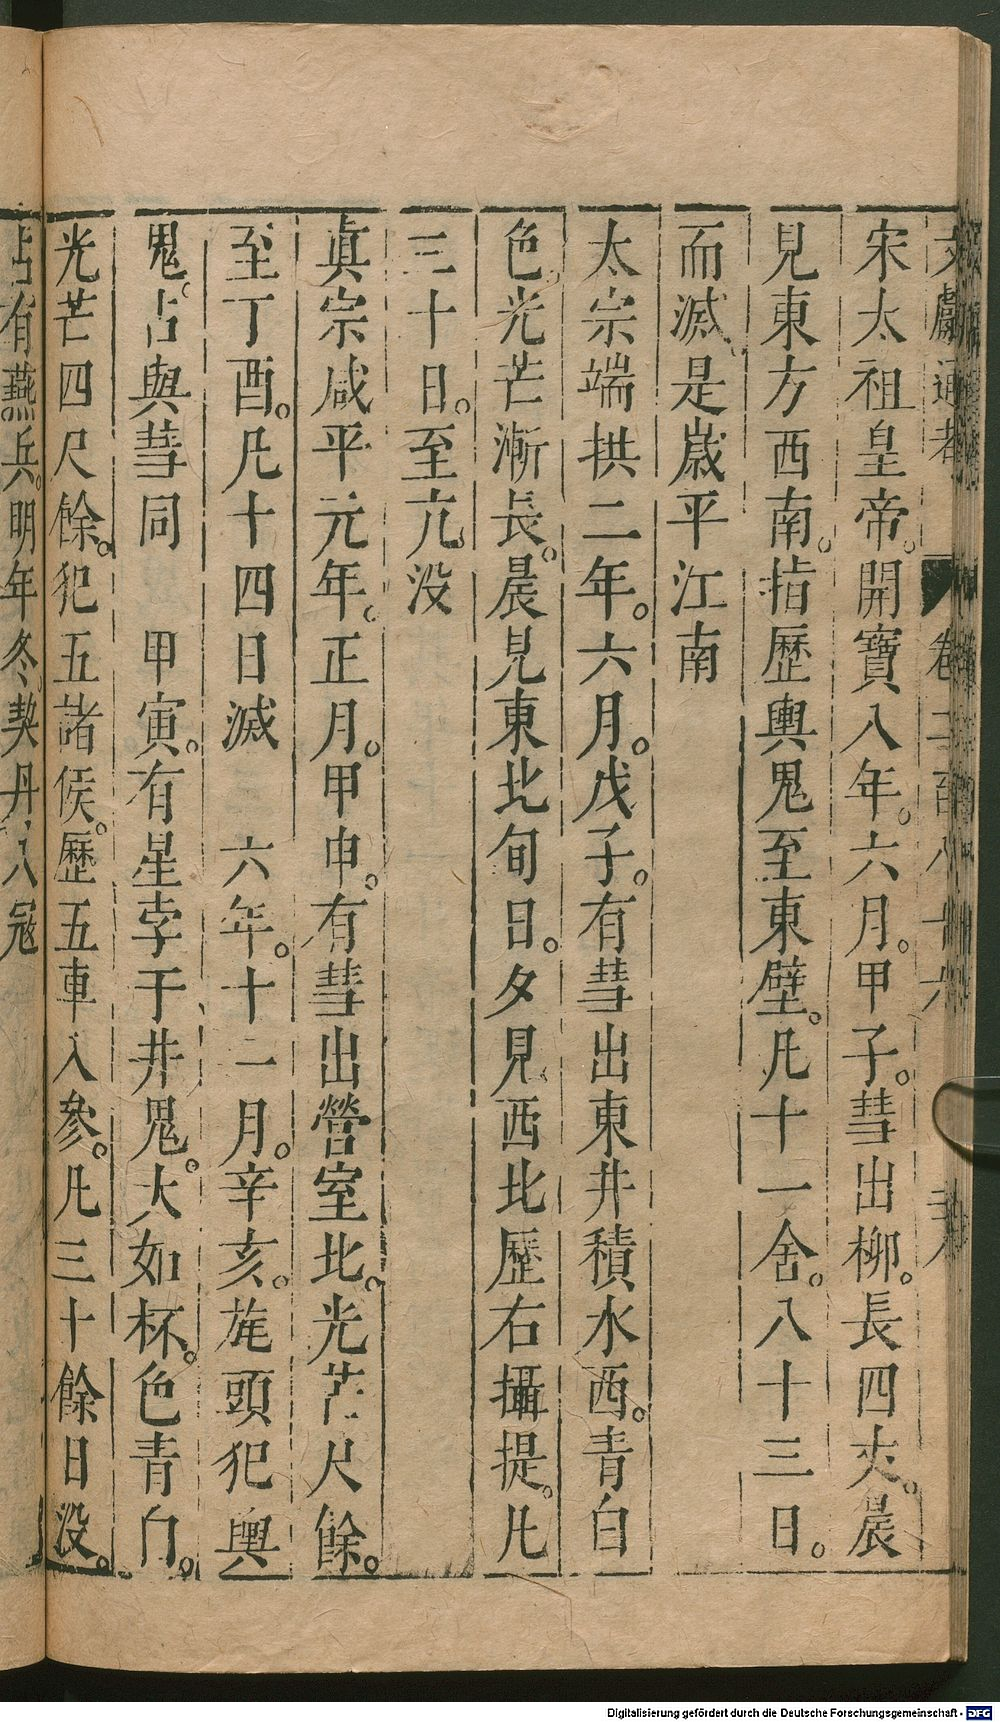 文獻通考 卷二百八十六
宋太祖皇帝。開寶八年。六月。甲子。彗出柳。長四丈。晨
見東方西南。指歷輿鬼至東壁。凡十一舍。八十三日。
而滅。是歲平江南
太宗端拱二年。六月。戊子。有彗出東井積水西。青白
色。光芒漸長。晨見東北旬日。夕見西北歷右攝提。凡
三十日。至亢。没
真宗咸平元年。正月。甲申。有彗出營室北。光芒尺餘。
至丁酉。凡十四日滅 六年。十一月。辛亥。旄頭犯輿
鬼。占與彗同 甲寅。有星孛于井鬼。大如杯。色青白。
光芒四尺餘。犯五諸侯。歷五車入參。凡三十餘日没。
占有燕兵。明年冬。契丹入冦
Digitalisierung gefördert durch die Deutsche Forschungsgemeinschaft - DFG